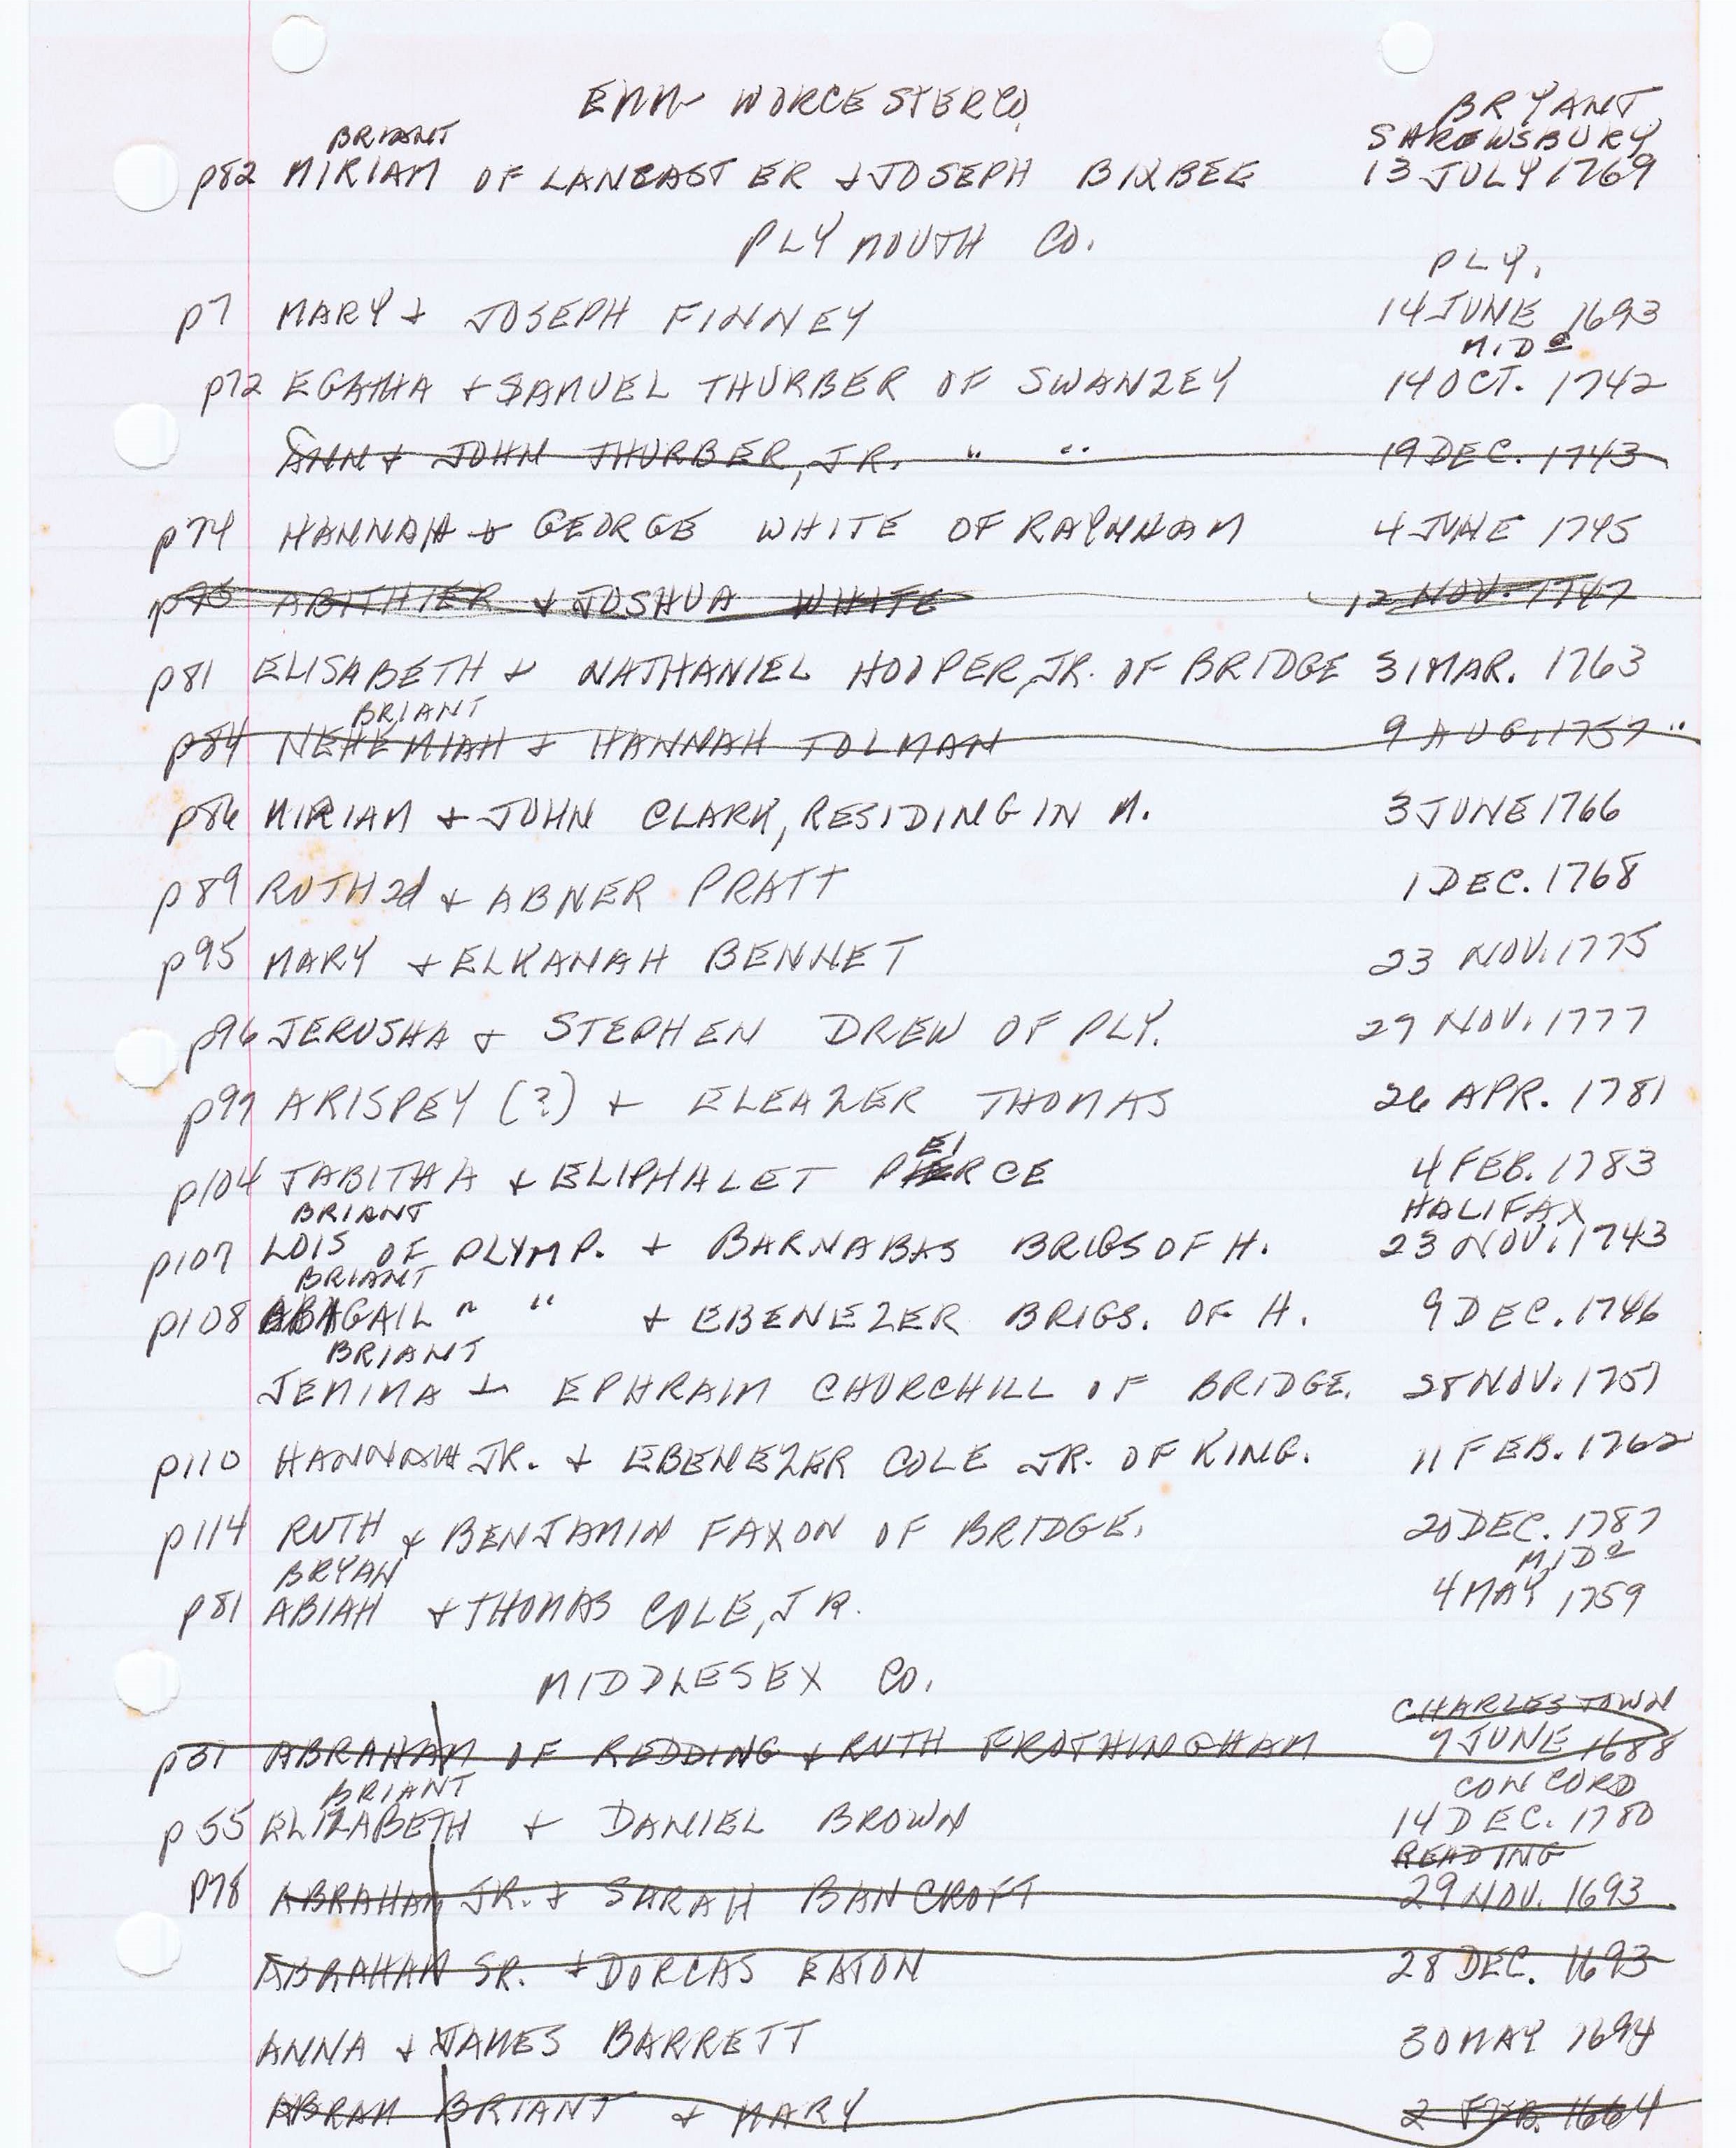 EMM WORCESTER CO. BRYANT
BRIANT SHREWSBURY
p82 MIRIAM OF LANCASTER + JOSEPH BIXBEE 13 JULY 1769
PLYMOUTH CO.
PLY.
p7 MARY + JOSEPH FINNEY 14 JUNE 1693
MIDo
p72 EGATHA + SAMUEL THURBER OF SWANZEY 14 OCT. 1742
ANN + JOHN THURBER, JR. " " 19 DEC. 1743
p74 HANNAH + GEORGE WHITE OF RAYNHAM 4 JUNE 1745
ABITHIER + JOSHUA WHITE 12 NOV. 1747
p81 ELISABETH + NATHANIEL HOOPER, JR. OF BRIDGE 31 MAR. 1763
BRIANT
p84 NEHEMIAH + HANNAH TOLMAN 9 AUG. 1757 "
p86 MIRIAM + JOHN CLARK, RESIDING IN M. 3 JUNE 1766
p89 RUTH 2d + ABNER PRATT 1 DEC. 1768
p95 MARY + ELKANAH BENNET 23 NOV. 1775
p96 JERUSHA + STEPHEN DREW OF PLY. 27 NOV. 1777
p97 ARISPEY (?) + ELEAZER THOMAS 26 APR. 1781
EI
p104 TABITHA + ELIPHALET PIERCE 4 FEB. 1783
BRIANT HALIFAX
p107 LOIS OF PLYMP. + BARNABAS BRIGS OF H. 23 NOV. 1743
BRIANT
p108 ABIGAIL " " + EBENEZER BRIGS. OF H. 9 DEC. 1746
BRIANT
JEMIMA + EPHRAIM CHURCHILL OF BRIDGE. 28 NOV. 1751
p110 HANNAH JR. + EBENEZER COLE JR. OF KING. 11 FEB. 1762
p114 RUTH + BENJAMIN FAXON OF BRIDGE. 20 DEC. 1787
BRYAN MIDo
p81 ABIAH + THOMAS COLE, JR. 4 MAY 1759
MIDDLESEX CO.
CHARLESTOWN
p31 ABRAHAM OF REDDING + RUTH FROTHINGHAM 7 JUNE 1688
BRIANT CONCORD
p55 ELIZABETH + DANIEL BROWN 14 DEC. 1780
READING
p78 ABRAHAM JR. + SARAH BANCROFT 29 NOV. 1693
ABRAHAM SR. + DORCAS EATON 28 DEC. 1693
ANNA + JAMES BARRETT 30 MAY 1694
ABRAM BRIANT + MARY 2 FEB. 1664